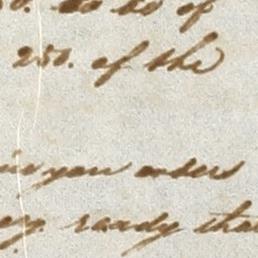 to be of
250. of the
you orders
ready that